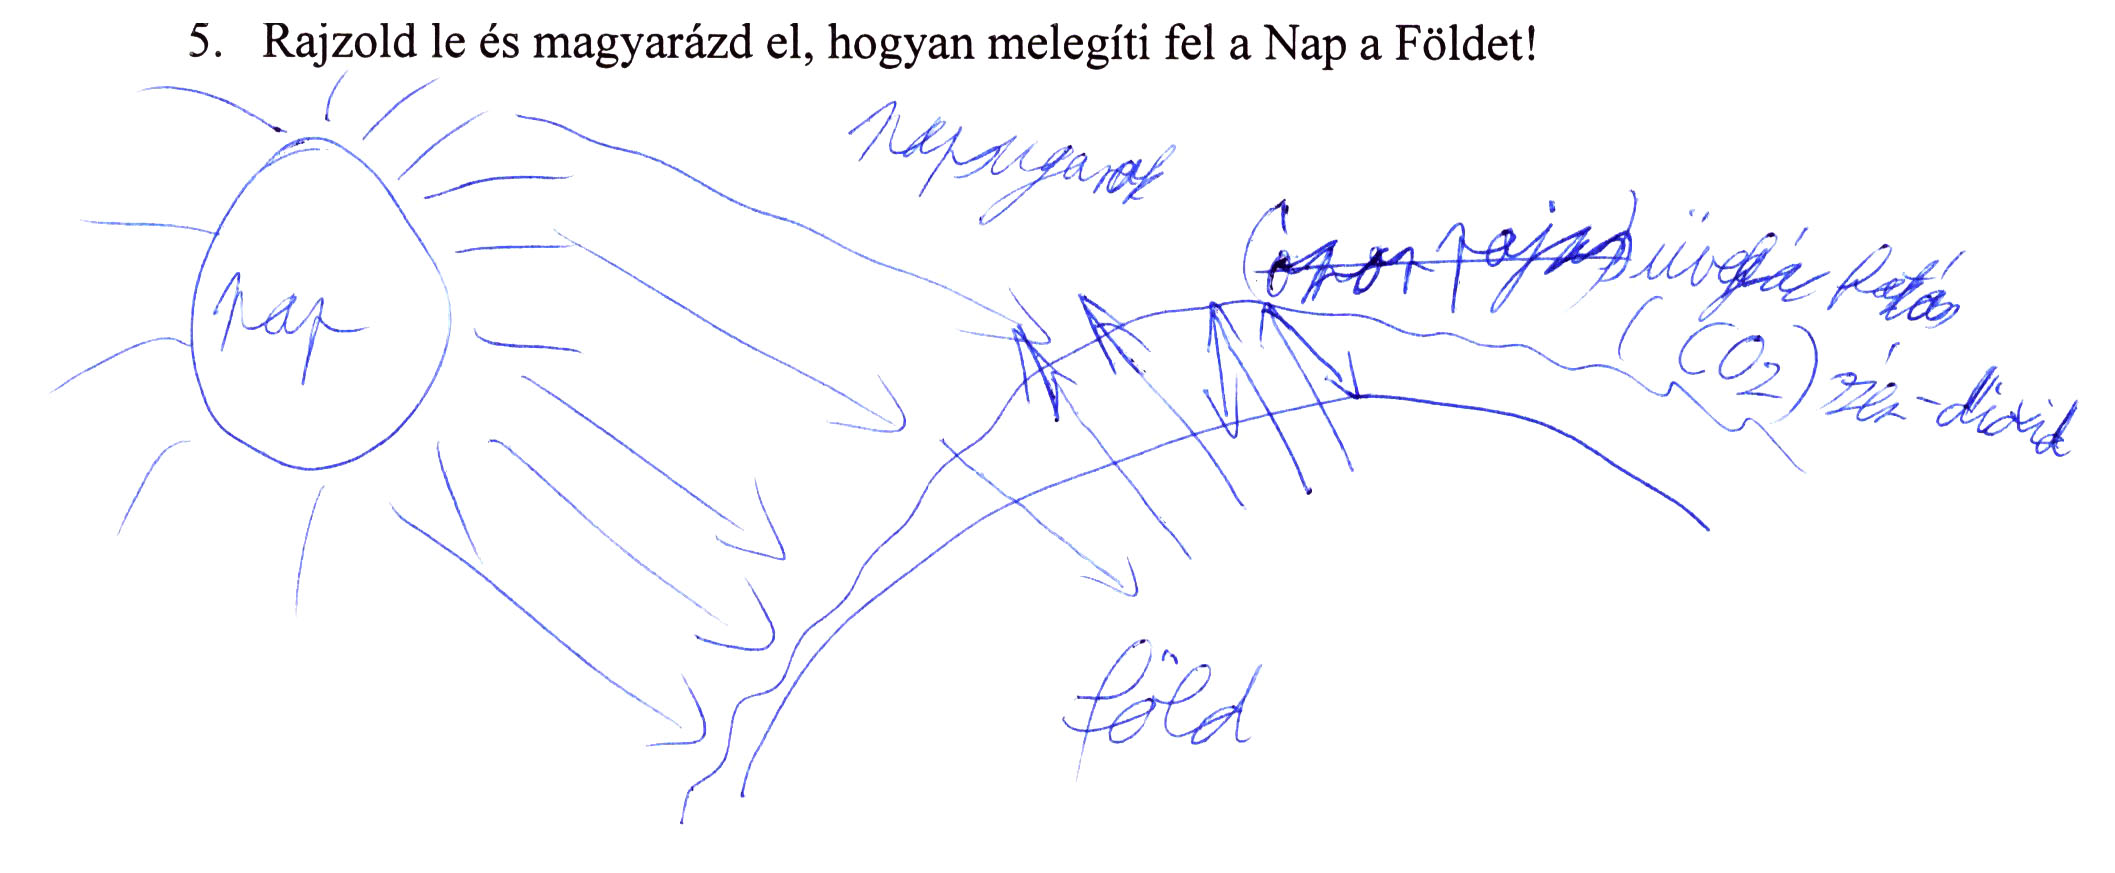 5. Rajzold le és magyarázd el, hogyan melegíti fel a Nap a Földet!
napsugarak
nap
(ózon pajzs) üvegház hatás
(CO2) szén-dioxid
föld